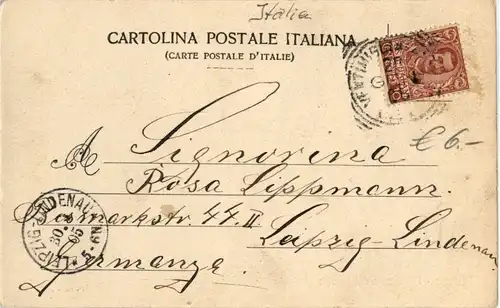 Italia
CARTOLINA POSTALE ITALIANA
(CARTE POSTALE D'ITALIE)
€ 6.-
A Signorina
Rosa Lippmann.
44 II
Leipzig-Lindenau
Germania.
LEIPZIG-LINDENAU
30.
05